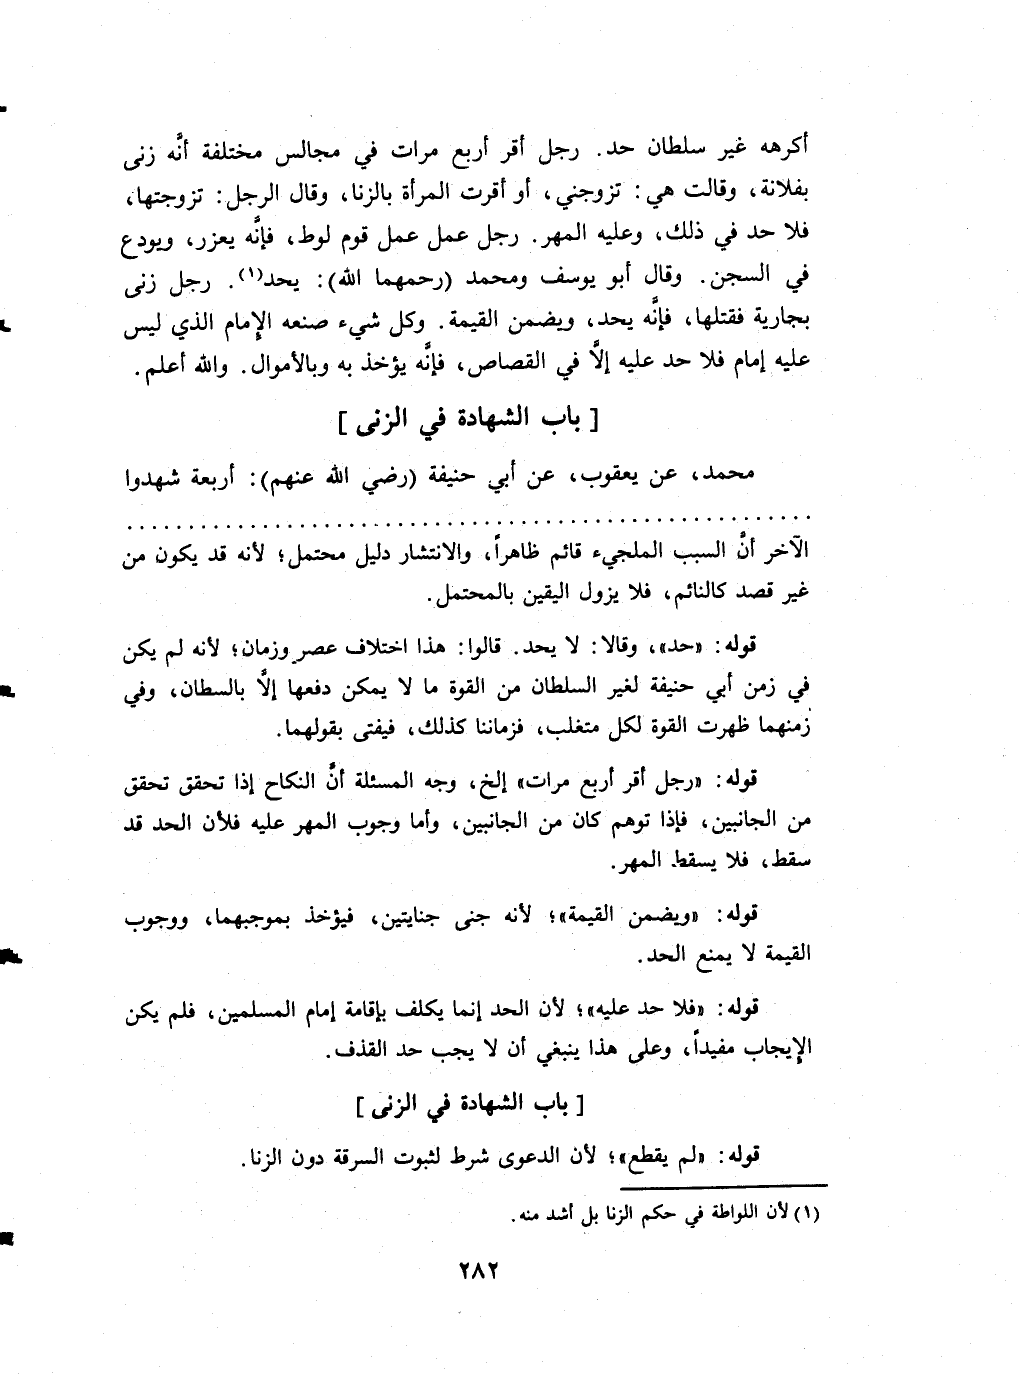 أكرهه غير سلطان حد. رجل أقر أربع مرات في مجالس مختلفة أنَّه زنى
بفلانة، وقالت هي: تزوجني، أو أقرت المرأة بالزنا، وقال الرجل: تزوجتها،
فلا حد في ذلك، وعليه المهر. رجل عمل عمل قوم لوط، فإنَّه يعزر، ويودع
في السجن. وقال أبو يوسف ومحمد (رحمهما الله): يحد(١). رجل زنى
بجارية فقتلها، فإنَّه يحد، ويضمن القيمة. وكل شيء صنعه الإمام الذي ليس
عليه إمام فلا حد عليه إلَّا في القصاص، فإنَّه يؤخذ به وبالأموال. والله أعلم.
[ باب الشهادة في الزنى ]
محمد، عن يعقوب، عن أبي حنيفة (رضي الله عنهم): أربعة شهدوا
الآخر أنَّ السبب الملجيء قائم ظاهراً، والانتشار دليل محتمل؛ لأنه قد يكون من
غير قصد كالنائم، فلا يزول اليقين بالمحتمل.
قوله: «حد»، وقالا: لا يحد. قالوا: هذا اختلاف عصر وزمان؛ لأنه لم يكن
في زمن أبي حنيفة لغير السلطان من القوة ما لا يمكن دفعها إلَّا بالسطان، وفي
زمنهما ظهرت القوة لكل متغلب، فزماننا كذلك، فيفتى بقولهما.
قوله: «رجل أقر أربع مرات» إلخ، وجه المسئلة أنَّ النكاح إذا تحقق تحقق
من الجانبين، فإذا توهم كان من الجانبين، وأما وجوب المهر عليه فلأن الحد قد
سقط، فلا يسقط المهر.
قوله: «ويضمن القيمة»؛ لأنه جنى جنايتين، فيؤخذ بموجبهما، ووجوب
القيمة لا يمنع الحد.
قوله: «فلا حد عليه»؛ لأن الحد إنما يكلف بإقامة إمام المسلمين، فلم يكن
الإيجاب مفيداً، وعلى هذا ينبغي أن لا يجب حد القذف.
[ باب الشهادة في الزنى ]
قوله: «لم يقطع»؛ لأن الدعوى شرط لثبوت السرقة دون الزنا.
(١) لأن اللواطة في حكم الزنا بل أشد منه.
٢٨٢